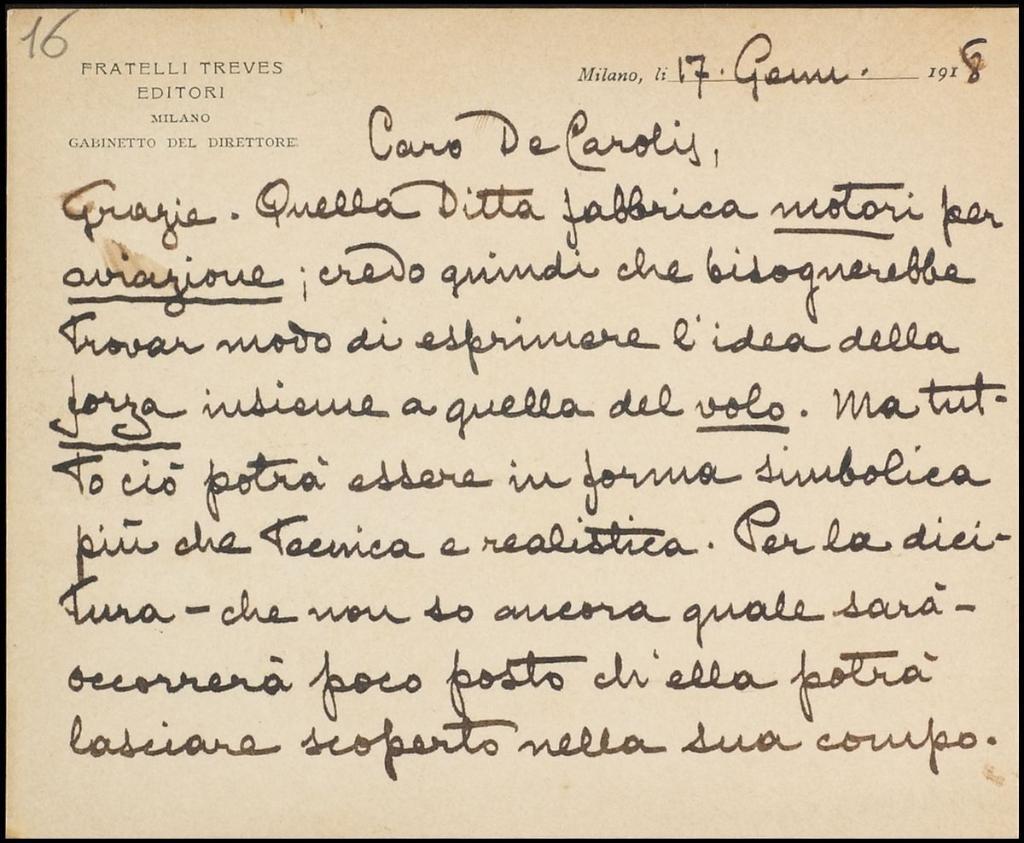 16
FRATELLI TREVES
EDITORI
MILANO
GABINETTO DEL DIRETTORE
Milano, li 17. Genn. 1918
Caro De Carolis,
Grazie. Quella Ditta fabbrica motori per
aviazione; credo quindi che bisognerebbe
trovar modo di esprimere l'idea della
forza insieme a quella del volo. Ma tut-
to ciò potrà essere in forma simbolica
più che tecnica e realistica. Per la dici-
tura - che non so ancora quale sarà -
occorrerà poco posto ch'ella potrà
lasciare scoperto nella sua compo-